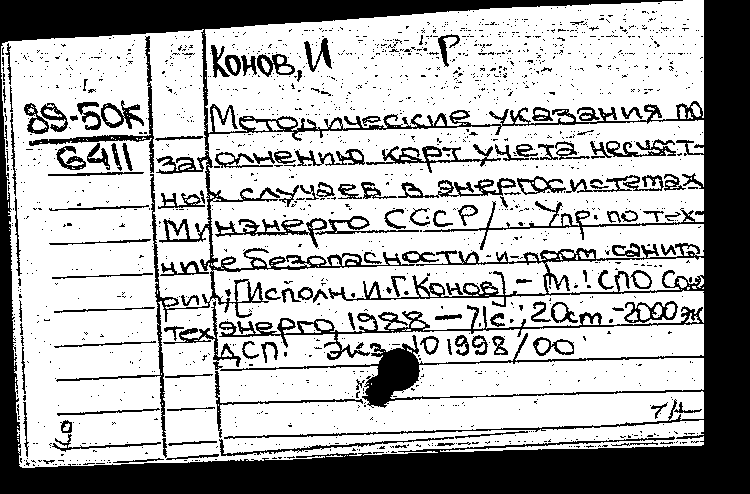 Конов, И Р
89-50к
6411
Методические указания по
заполнению карт учета несчаст-
ных случаев в энергосистемах
Минэнерго СССР/... Упр. по тех-
нике безопасности и пром. санита
рии; [Исполн. И.Г. Конов]. - М.: СПО Союз
техэнерго, 1988 - 71с.; 20см. - 2000 эк
ДСП. Экз. №01998/00